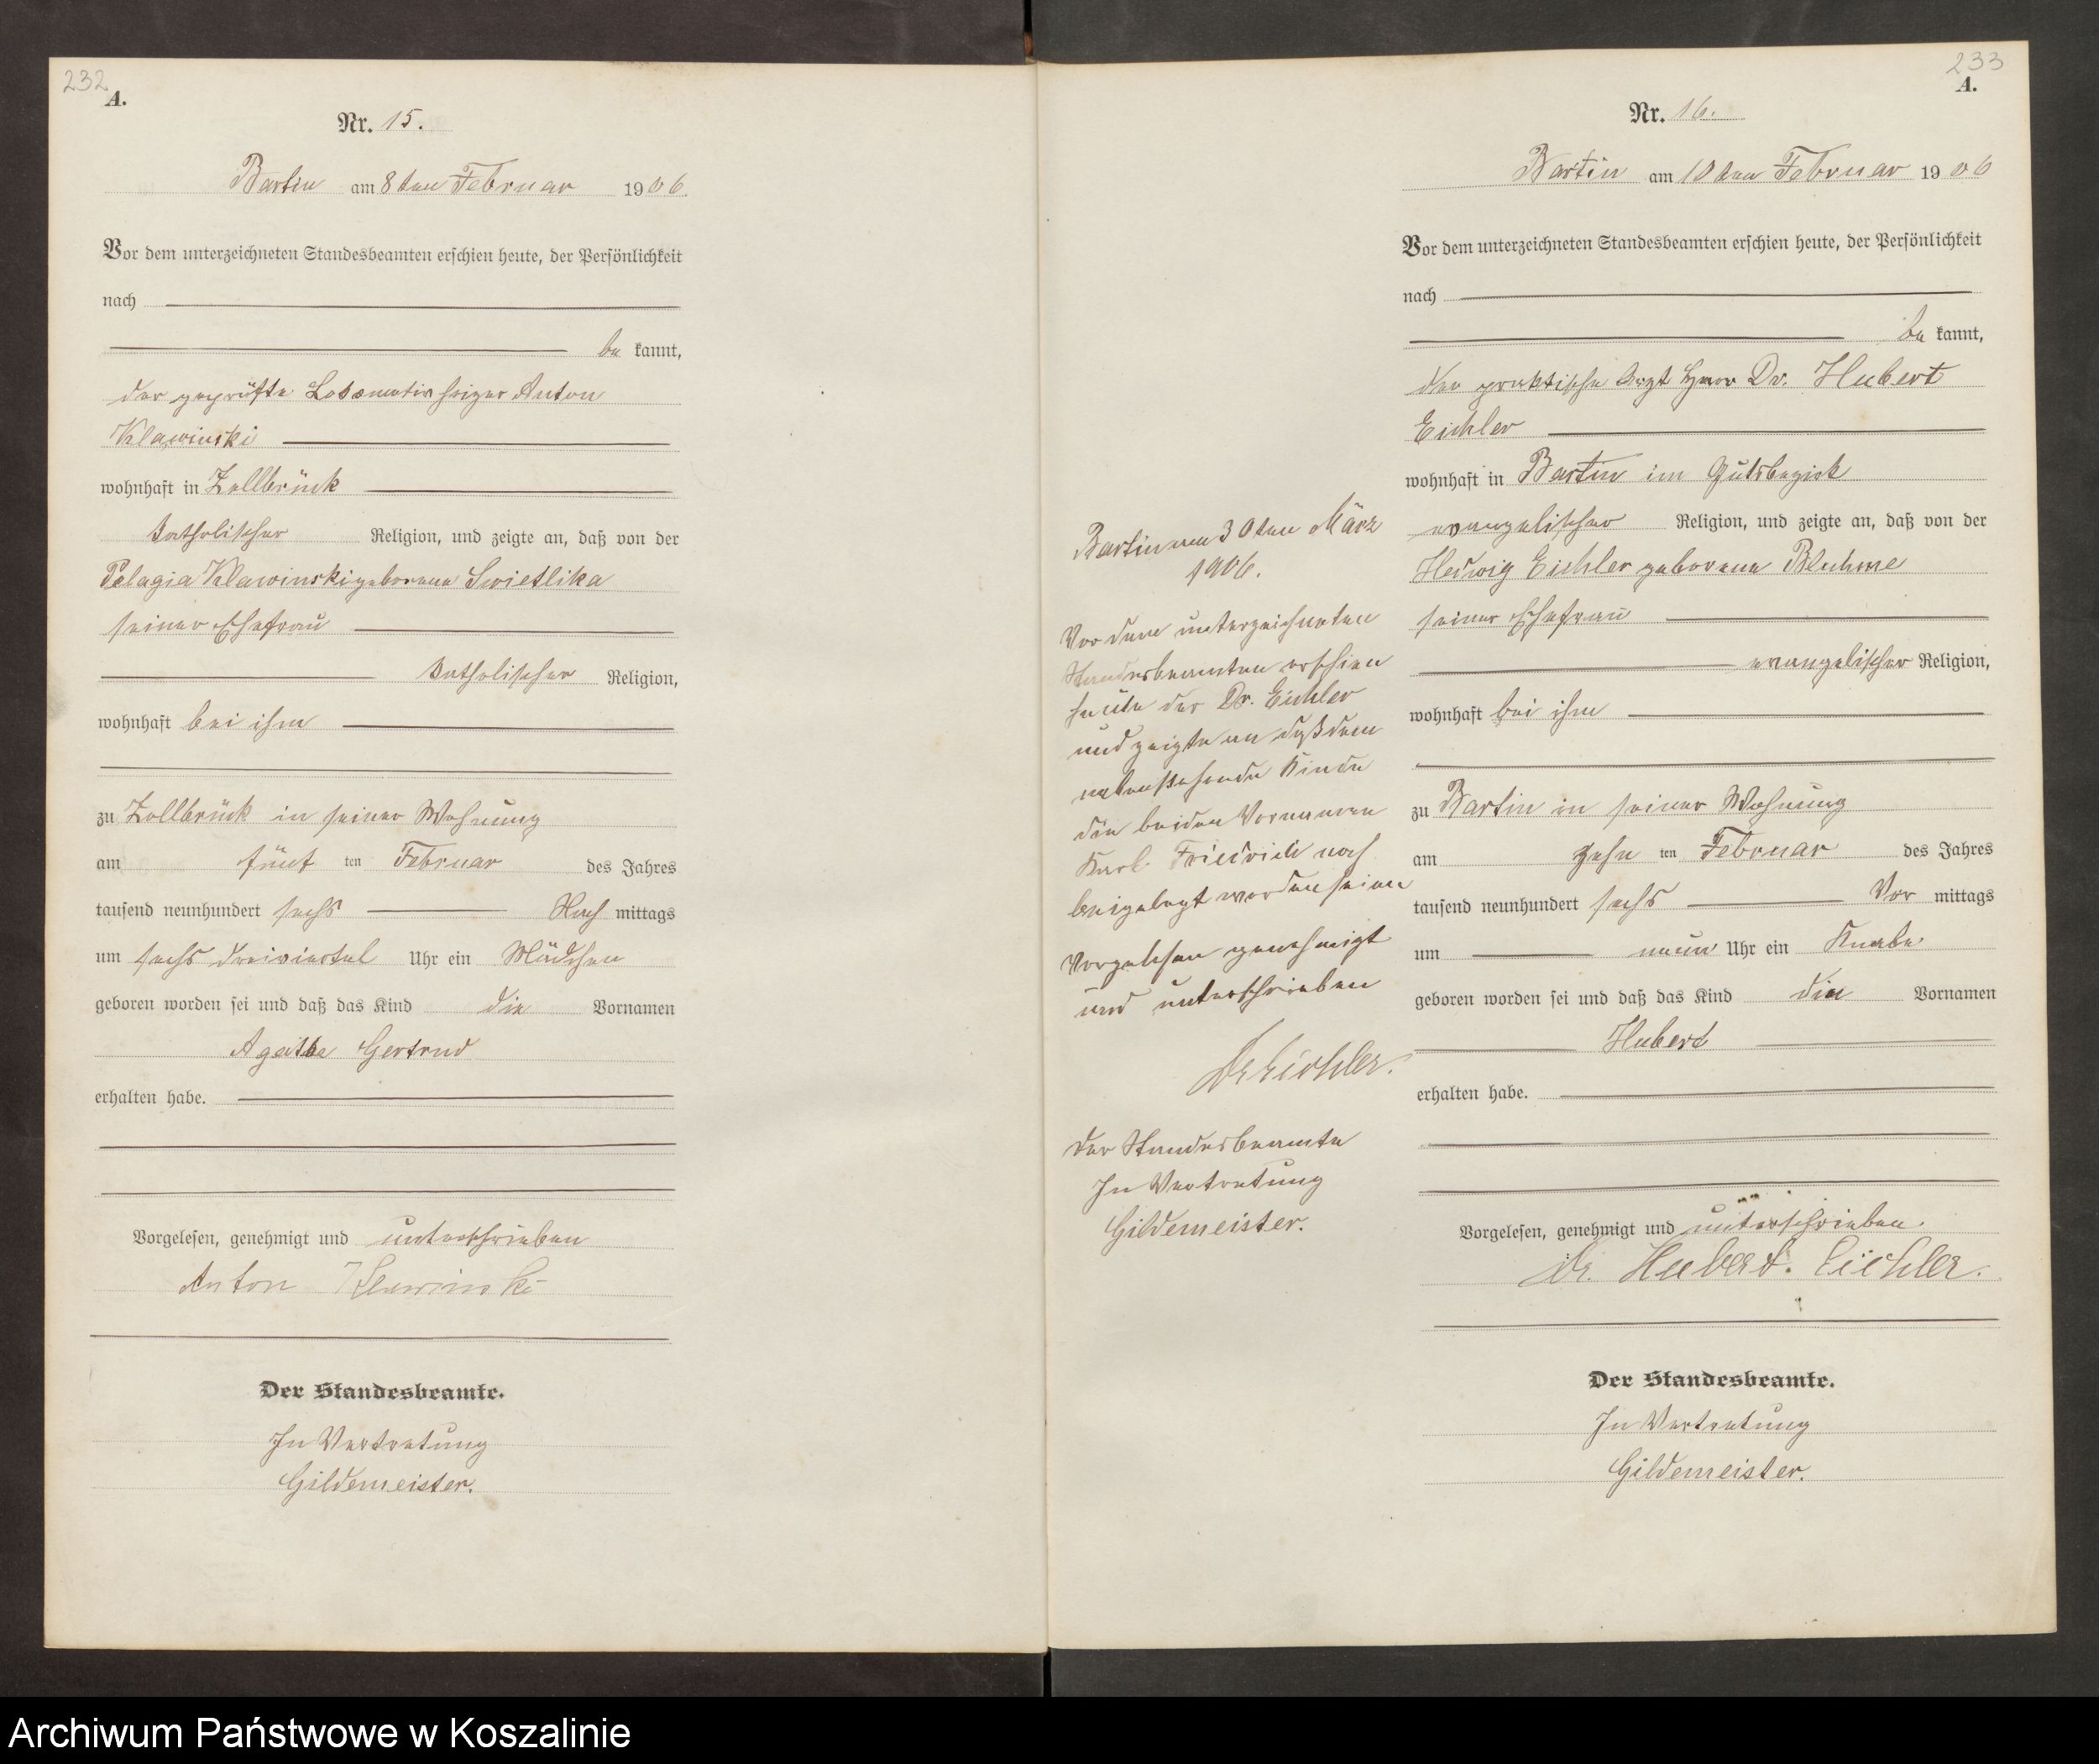 232
A.
Nr. 15.
Bartin am 8ten Februar 1906.
Vor dem unterzeichneten Standesbeamten erschien heute, der Persönlichkeit
nach
be kannt,
der geprüfte Lokomotivheizer Anton
Klawinski
wohnhaft in Zollbrück
katholischer Religion, und zeigte an, daß von der
Pelagia Klawinski geborene Swietlika
seiner Ehefrau
katholischer Religion,
wohnhaft bei ihm
zu Zollbrück in seiner Wohnung
am fünf ten Februar des Jahres
tausend neunhundert sechs Nach mittags
um sechs dreiviertel Uhr ein Mädchen
geboren worden sei und daß das Kind die Vornamen
Agathe Gertrud
erhalten habe.
Vorgelesen, genehmigt und unterschrieben
Anton Klawinski
Der Standesbeamte.
In Vertretung
Gildemeister.
233
A.
Nr. 16.
Bartin am 10ten Februar 1906
Vor dem unterzeichneten Standesbeamten erschien heute, der Persönlichkeit
nach
be kannt,
der praktische Arzt Herr Dr. Hubert
Eichler
wohnhaft in Bartin im Gutsbezirk
evangelischer Religion, und zeigte an, daß von der
Hedwig Eichler geborene Bluhme
seiner Ehefrau
evangelischer Religion,
wohnhaft bei ihm
zu Bartin in seiner Wohnung
am zehn ten Februar des Jahres
tausend neunhundert sechs Vor mittags
um neun Uhr ein Knabe
geboren worden sei und daß das Kind die Vornamen
Hubert
erhalten habe.
Vorgelesen, genehmigt und unterschrieben.
Dr. Hubert Eichler.
Der Standesbeamte.
In Vertretung
Gildemeister.
Bartin am 30ten März
1906.
Vor dem unterzeichneten
Standesbeamten erschien
heute der Dr. Eichler
und zeigte an daß dem
nebenstehende Kinde
die beiden Vornamen
Karl Friedrich noch
beigelegt worden seien
Vorgelesen genehmigt
und unterschrieben
Dr Eichler.
Der Standesbeamte
In Vertretung
Gildemeister.
Archiwum Państwowe w Koszalinie